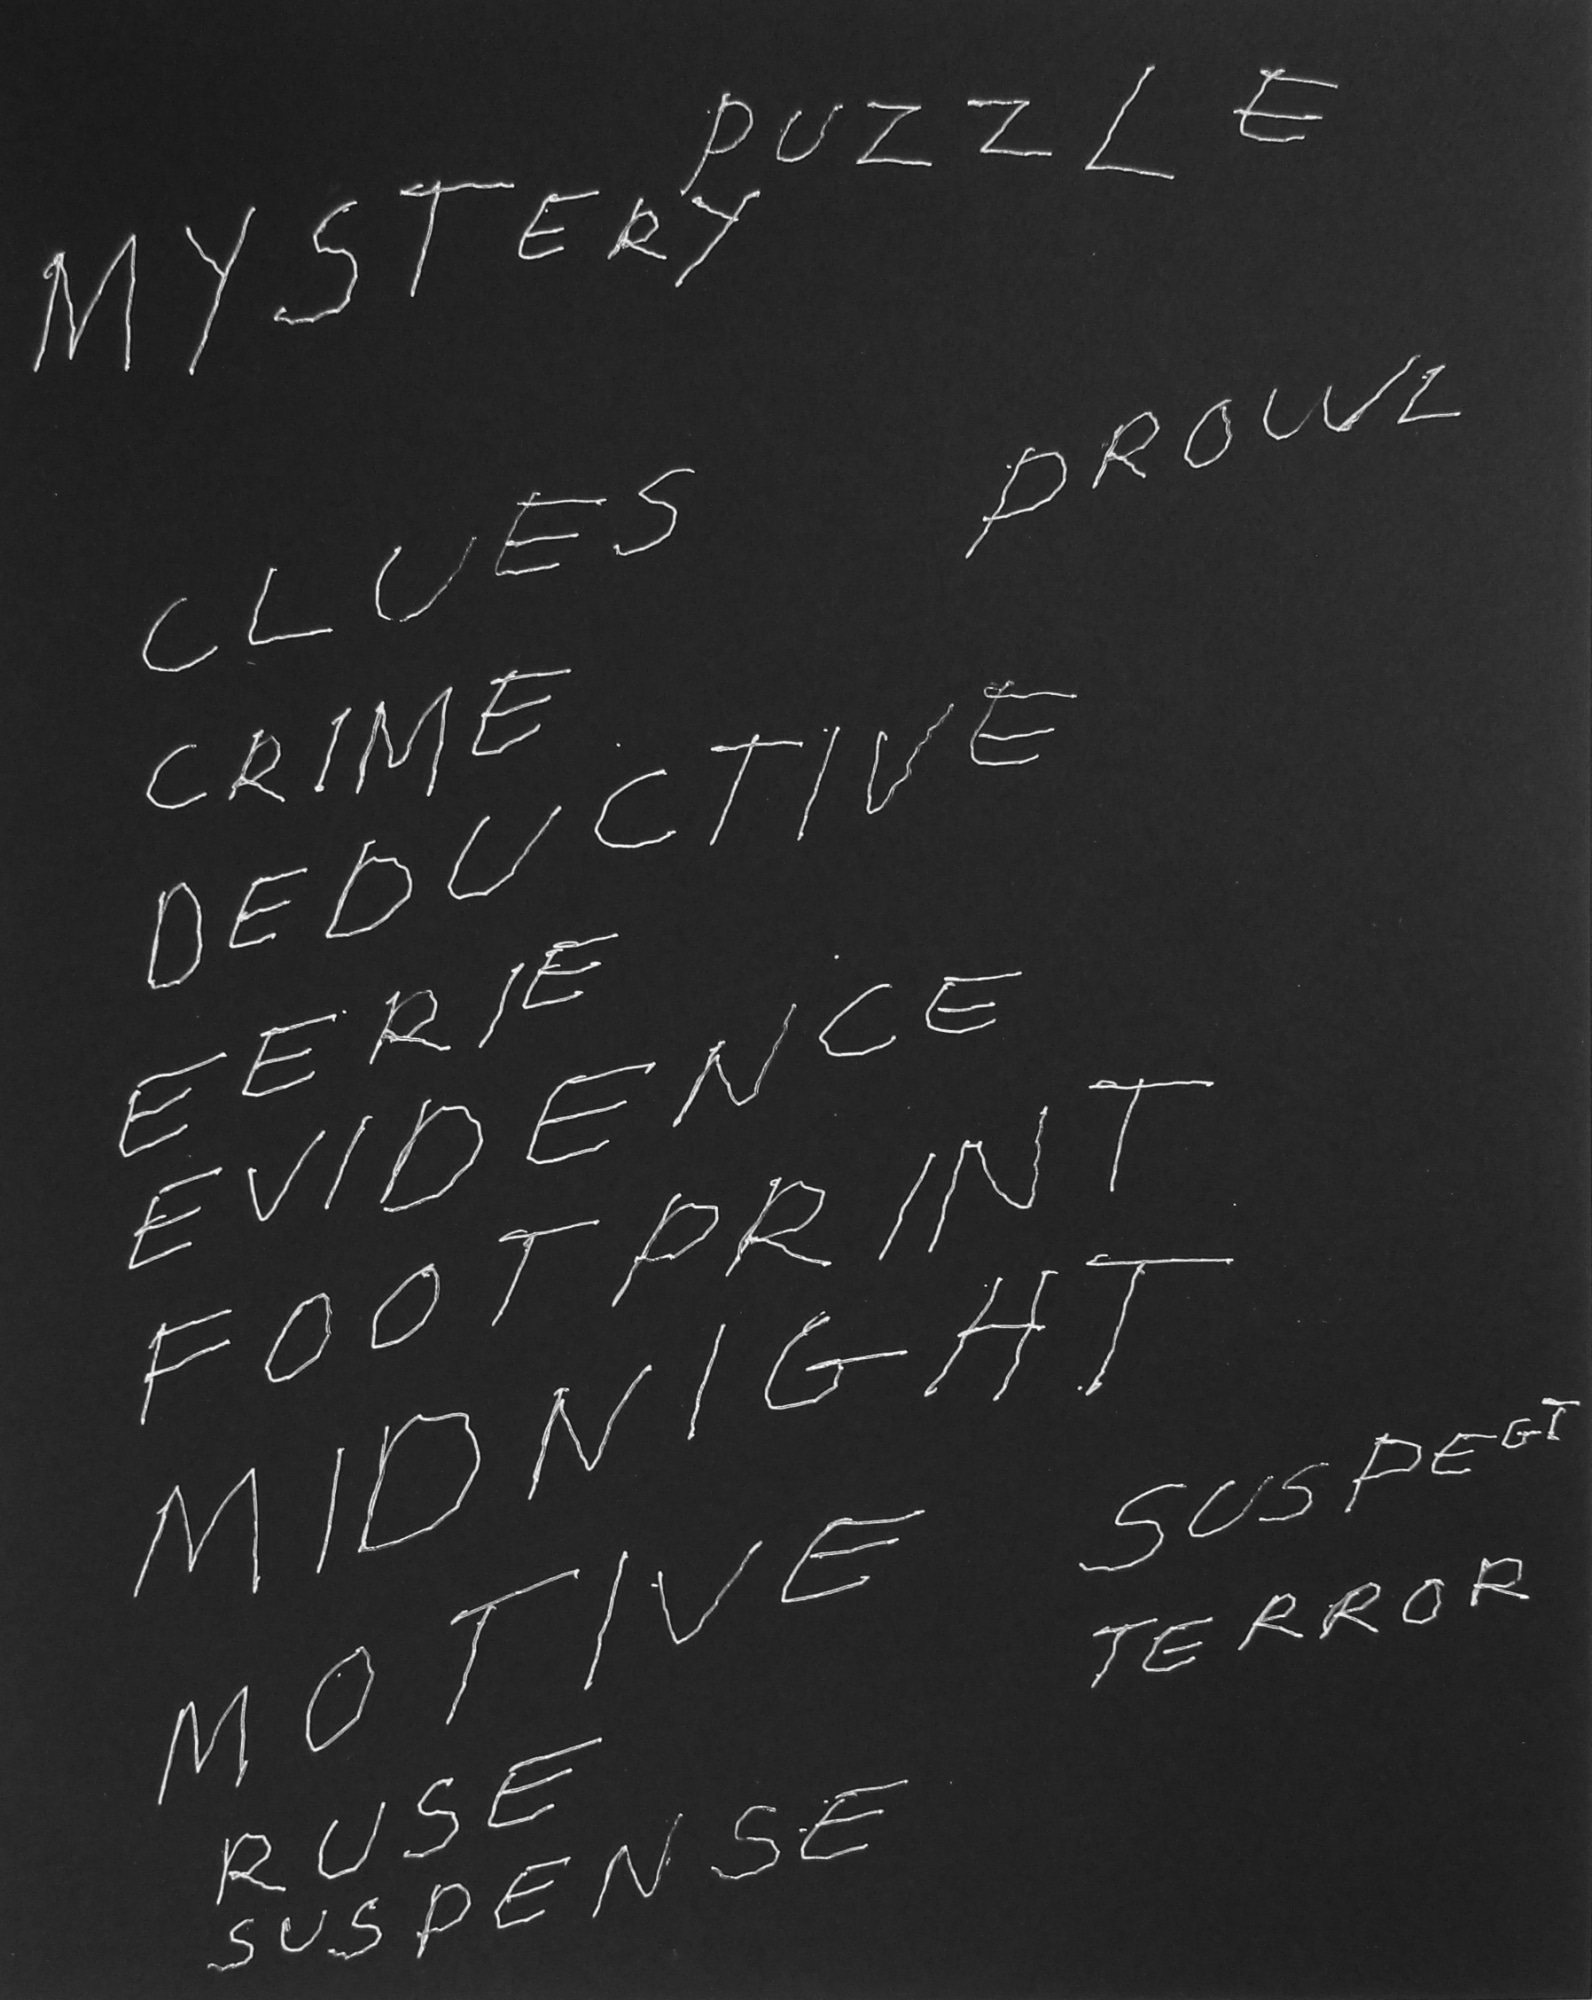 PUZZLE
MYSTERY
PROWL
CLUES
CRIME
DEDUCTIVE
EERIE
EVIDENCE
FOOTPRINT
MIDNIGHT
MOTIVE
SUSPEGT
TERROR
RUSE
SUSPENSE